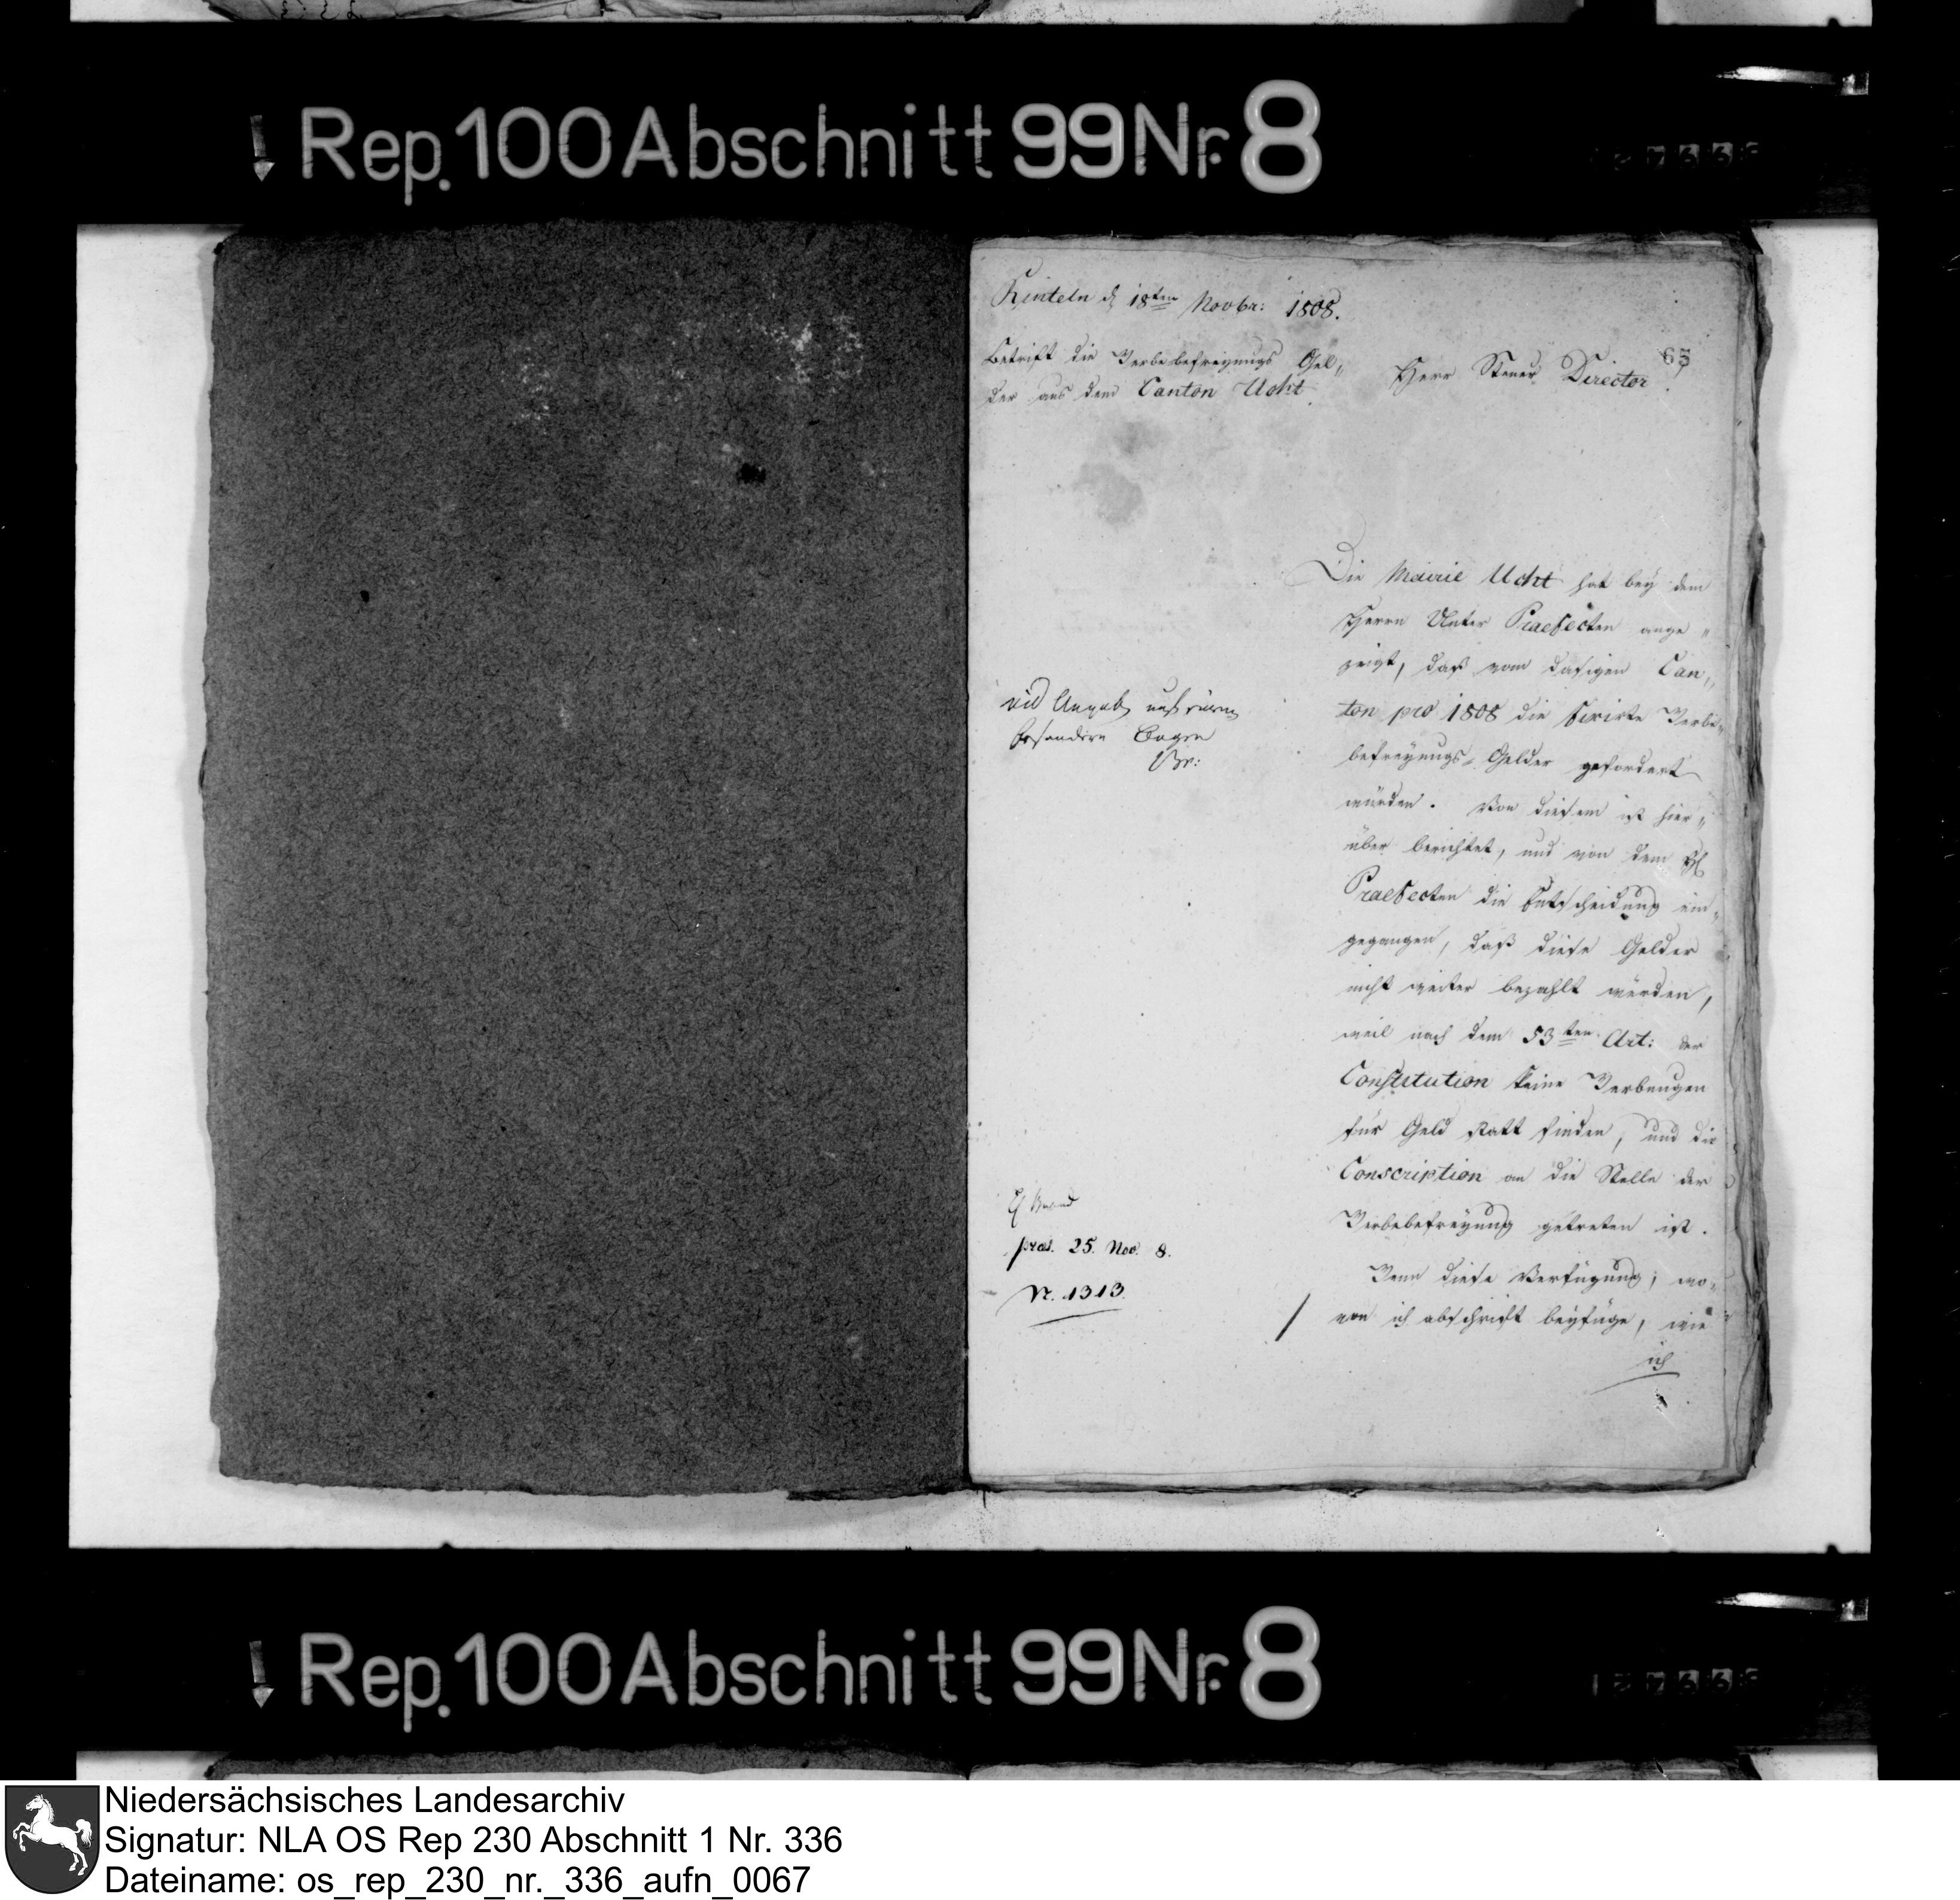 Rep. 100 Abschnitt 99 Nr. 8
Rinteln d 18ten Novbr: 1808.
65
Betrift die Werbebefreyungs Gel„
der aus dem Canton Ucht.
Herr Steuer Director.
Die Mairie Ucht hat bey dem
Herrn Unter Praefecten ange„
zeigt, daß vom dasigen Can„
ton pro 1808 die fixirte Werbe„
befreyungs-Gelder gefordert
würden. Von diesem ist hier„
über berichtet, und von dem H
Praefecten die Entscheidung ein„
gegangen, daß diese Gelder
nicht weiter bezahlt würden,
weil nach dem 53ten Art: der
Constitution keine Werbungen
für Geld statt finden, und die
Conscription an die Stelle der
Werbebefreyung getreten ist.
Wenn diese Verfügung, wo„
von ich abschrift beyfüge, wie
ich
besondern Bogen
praes. 25. Nov. 8.
Nr. 1313.
Rep. 100 Abschnitt 99 Nr. 8
Niedersächsisches Landesarchiv
Signatur: NLA OS Rep 230 Abschnitt 1 Nr. 336
Dateiname: os_rep_230_nr._336_aufn_0067